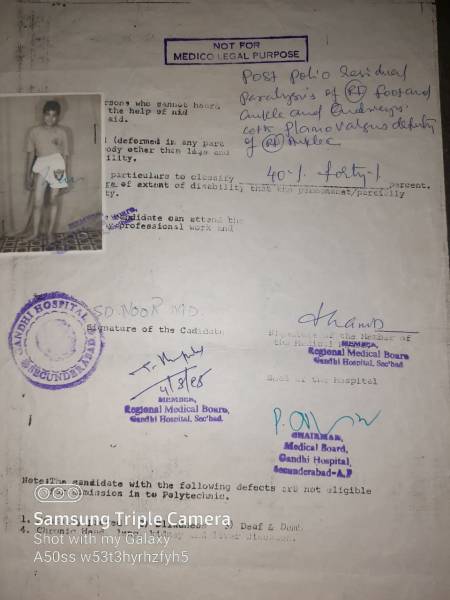 NOT FOR
MEDICO LEGAL PURPOSE
Post polio Residual
Paralysis of (Rt) foot and
Ankle and
with planovalgus deformity
of (Rt) Ankle
40% forty%
rsons who cannot heard
the help of aid
aid.
(deformed in any part
body other than legs and
ility.
particulars to classify percent.
re of extent of disability that the permanent/partially
ty.
candidate can attend the
professional work and
GANDHI HOSPITAL
SECUNDERABAD
SD. NOOR MD.
Signature of the Cadidate
4/3/85
MEMBER,
Regional Medical Board,
Gandhi Hospital, Sec'bad.
Signature of the Member of
the Medical
MEMBER,
Regional Medical Board
Gandhi Hospital, Sec'bad
Head of the Hospital
CHAIRMAN,
Medical Board,
Gandhi Hospital,
Secunderabad-A.P
Note:The candidate with the following defects are not eligible
admission in to Polytechnic.
1. Blindness Deaf & Dumb.
4. Chronic kidney and liver disease.
Samsung Triple Camera
Shot with my Galaxy
A50ss w53t3hyrhzfyh5